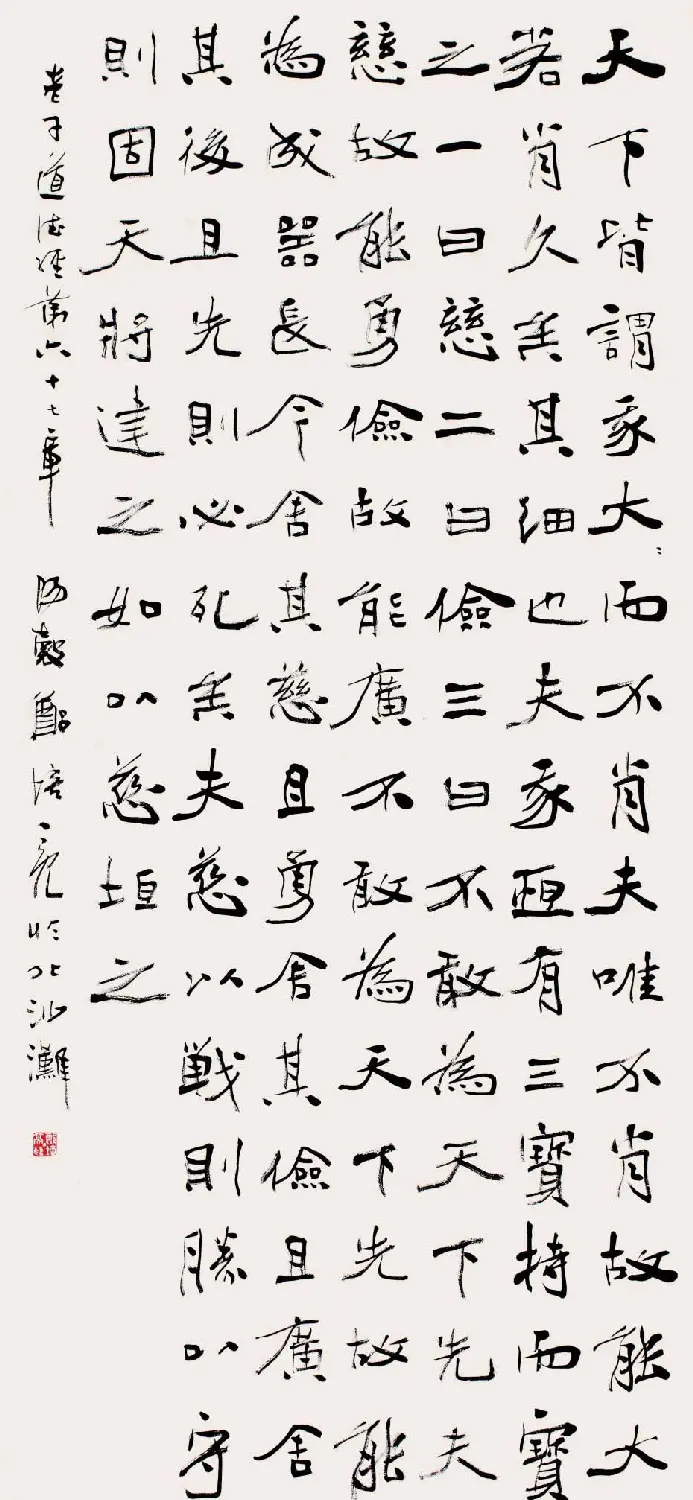 天下皆謂我大〻而不肖夫唯不肖故能大
若肖久矣其細也夫我恆有三寶持而寶
之一曰慈二曰儉三曰不敢為天下先夫
慈故能勇儉故能廣不敢為天下先故能
為成器長今舍其慈且勇舍其儉且廣舍
其後且先則必死矣夫慈以戰則勝以守
則固天將建之如以慈垣之
老子道德經第六十七章 培亮於北沙灘